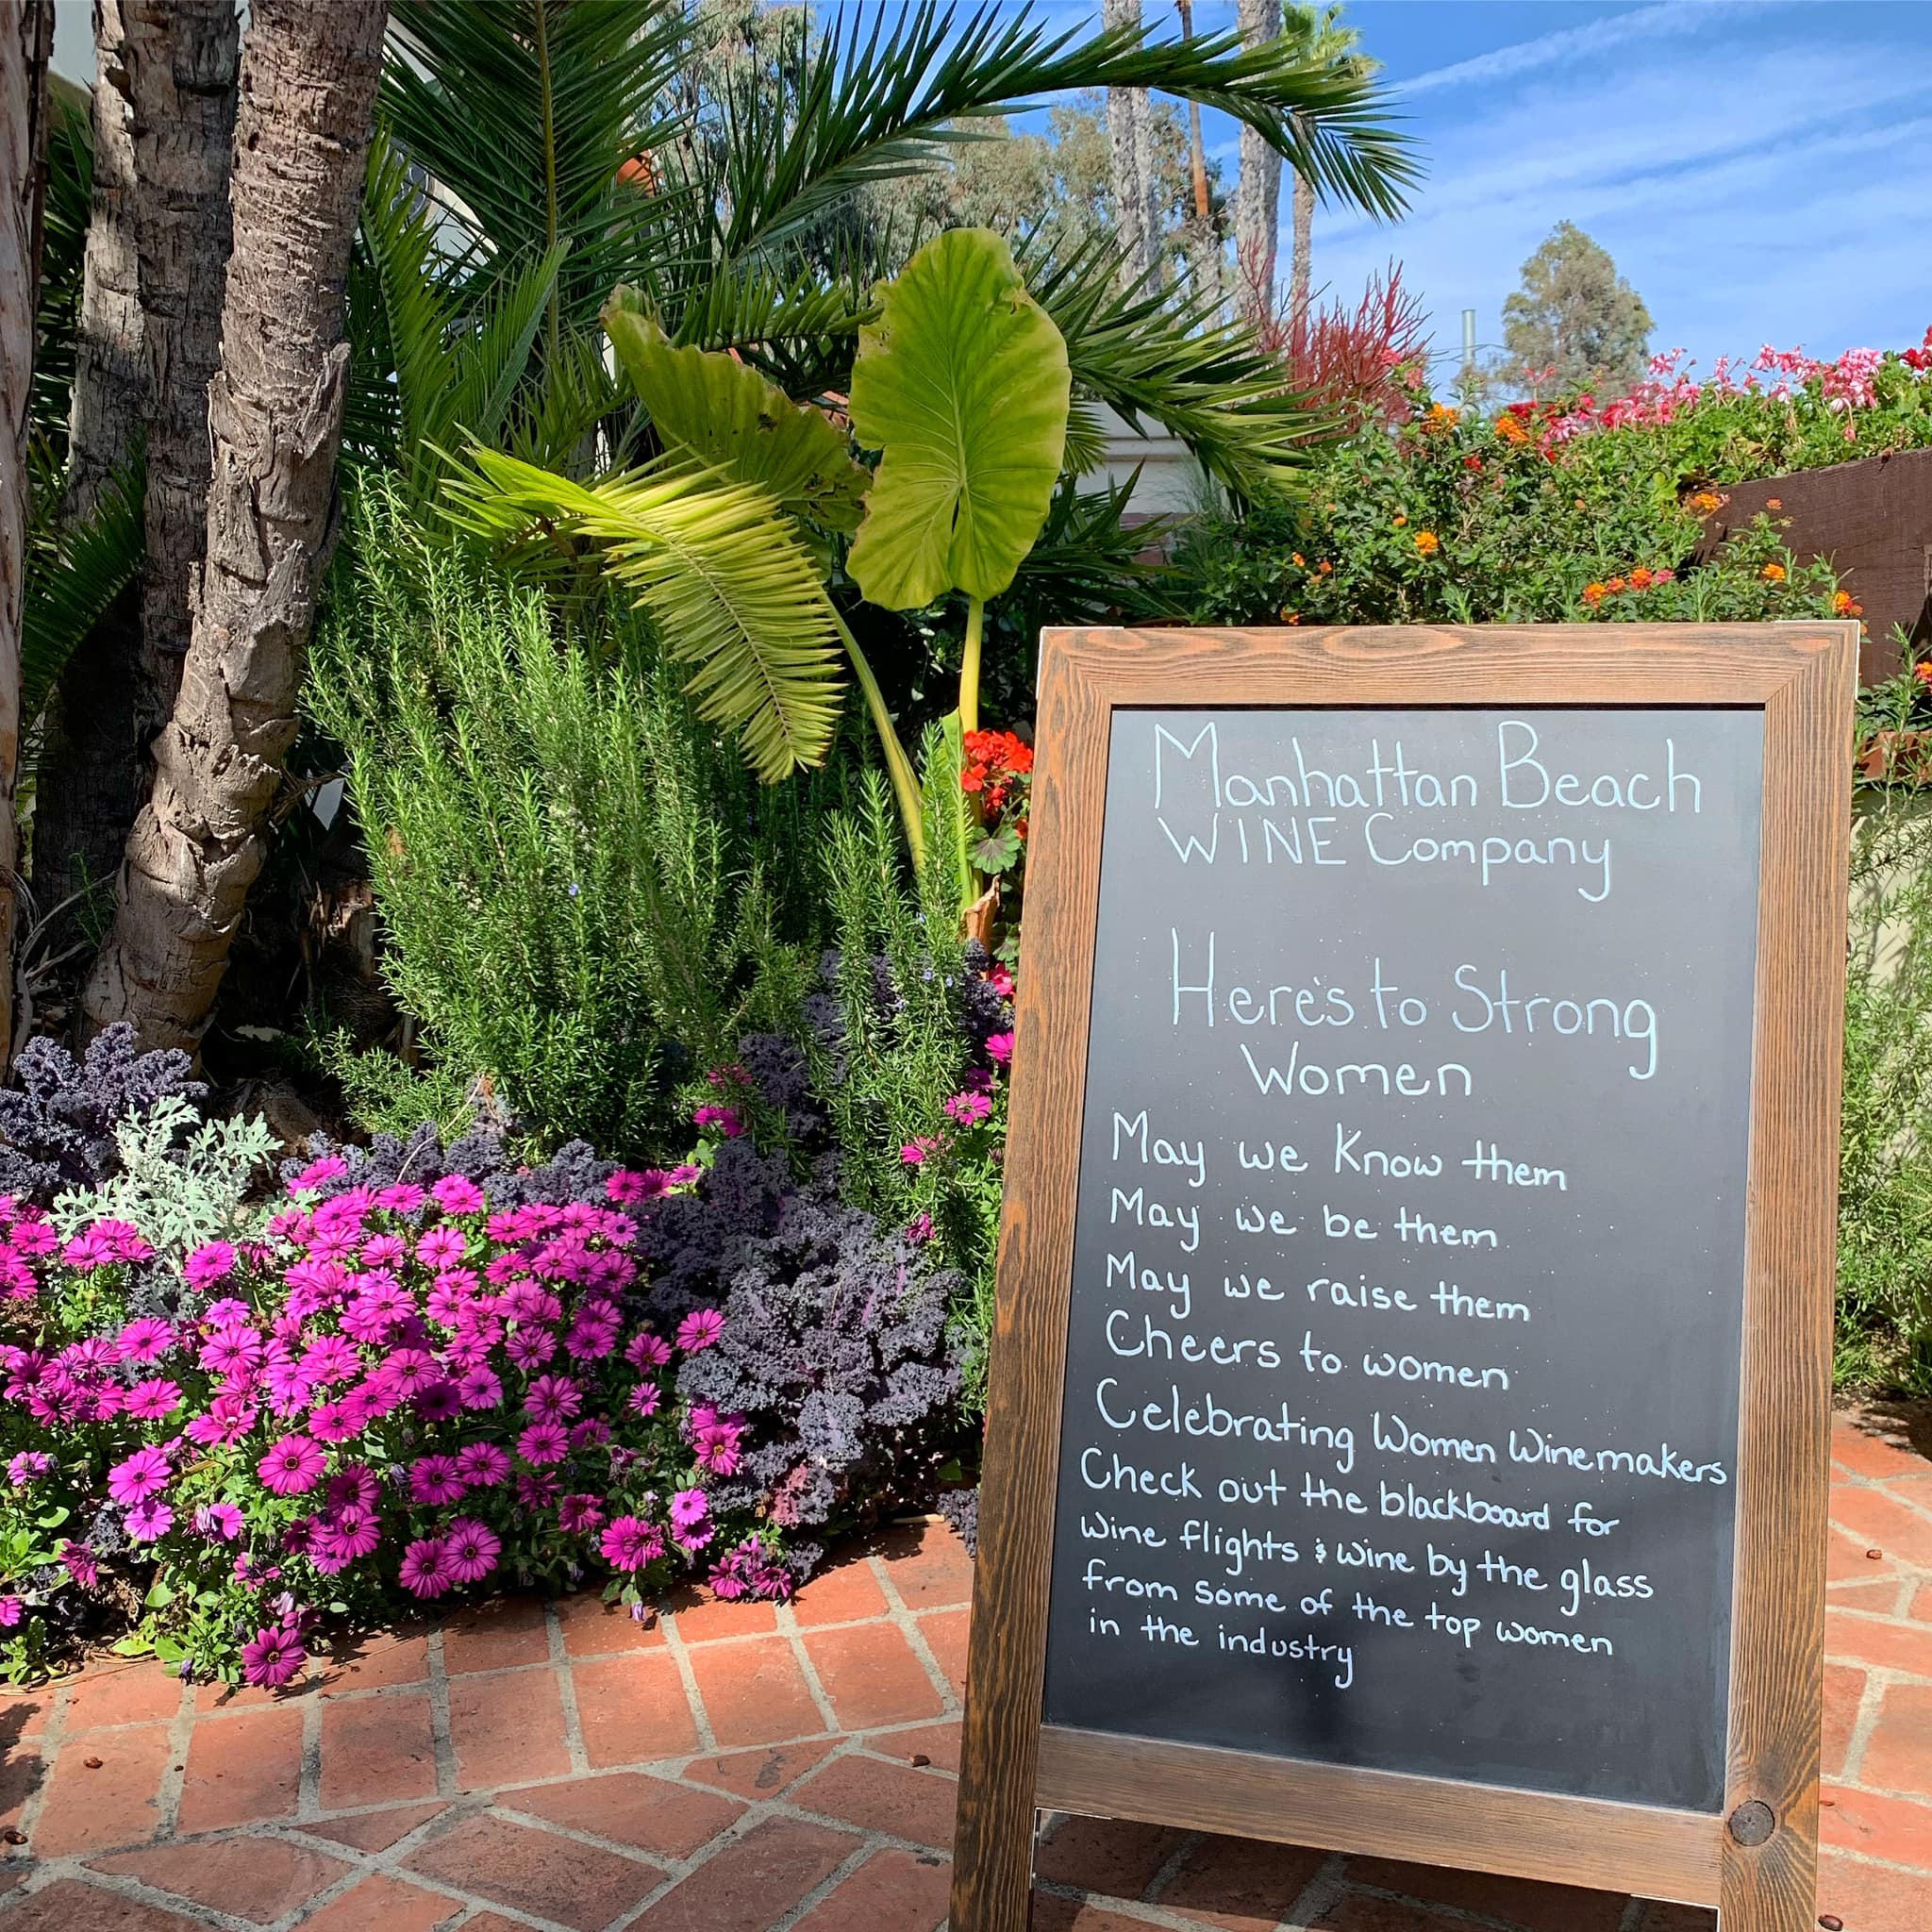 Manhattan Beach
WINE Company
Here's to Strong
Women
May we Know them
May we be them
May we raise them
Cheers to women
Celebrating Women Winemakers
Check out the blackboard for
Wine flights & wine by the glass
from some of the top women
in the industry